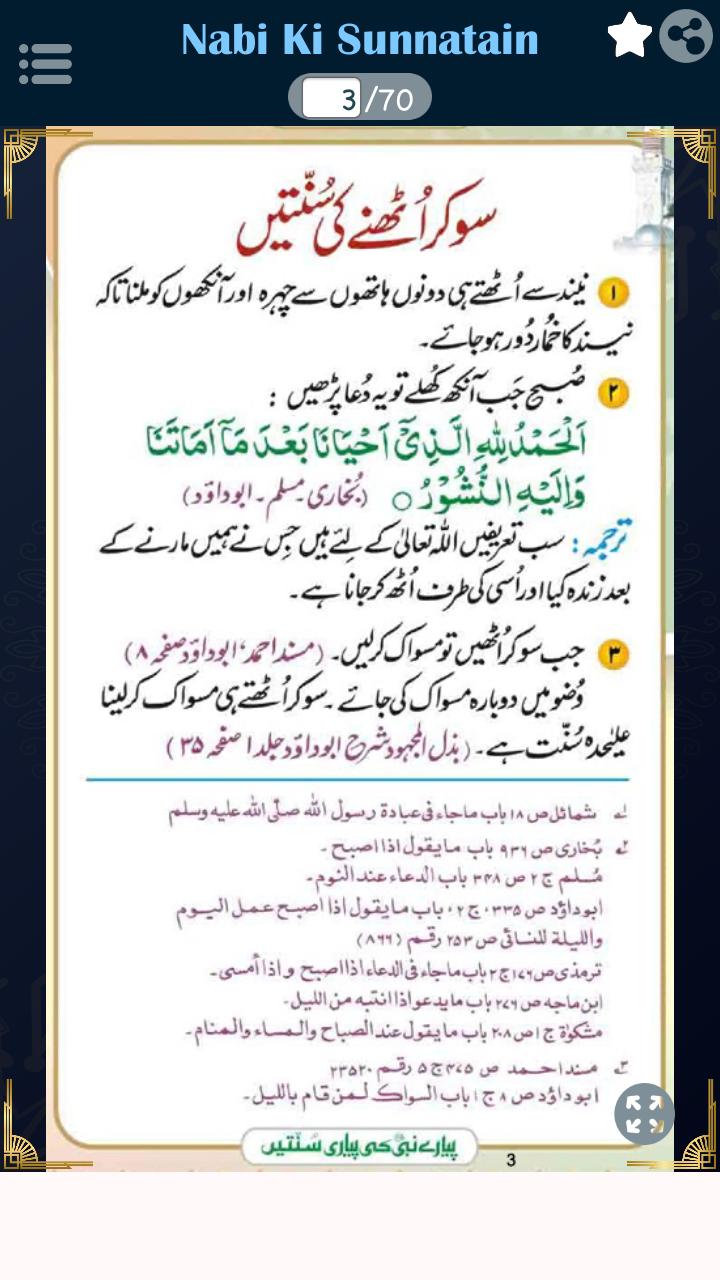 Nabi Ki Sunnatain
3 /70
سو کر اُٹھنے کی سُنّتیں
۱ نیند سے اُٹھتے ہی دونوں ہاتھوں سے چہرہ اور آنکھوں کو ملنا تاکہ
نیند کا خُمار دُور ہو جائے۔
۲ صُبح جَب آنکھ کُھلے تو یہ دُعا پڑھیں :
اَلْحَمْدُ لِلّٰهِ الَّذِیْٓ اَحْیَانَا بَعْدَ مَآ اَمَاتَنَا
وَاِلَیْهِ النُّشُوْرُ ○ (بُخاری۔ مسلم۔ ابوداؤد)
ترجمہ: سب تعریفیں اللہ تعالیٰ کے لِئے ہیں جِس نے ہمیں مارنے کے
بعد زندہ کیا اور اُسی کی طرف اُٹھ کر جانا ہے۔
۳ جب سو کر اُٹھیں تو مسواک کرلیں۔ (مسند احمد، ابوداؤد صفحہ ۸)
وُضو میں دوبارہ مسواک کی جائے۔ سو کر اُٹھتے ہی مسواک کر لینا
علیٰحدہ سُنّت ہے۔ (بذل المجہود شرح ابوداؤد جلد ۱ صفحہ ۳۵)
لـه شمائل ص ۱۸ باب ماجاء فی عبادة رسول الله صلّی الله علیه وسلم
ـه بُخاری ص ۹۳۶ باب مایقول اذا اصبح۔
مُسلم ج ۲ ص ۳۴۸ باب الدعاء عند النوم۔
ابوداؤد ص ۳۳۵، ج ۲، باب مایقول اذا اصبح عمل الیوم
واللیلة للنسائی ص ۲۵۳ رقم (۸۶۶)
ترمذی ص ۱۷۶ ج ۲ باب ماجاء فی الدعاء اذا اصبح و اذا أمسی۔
ابن ماجه ص ۲۷۶ باب مایدعو اذا انتبه من اللیل۔
مشکوٰة ج ۱ ص ۲۰۸ باب مایقول عند الصباح والمساء والمنام۔
ـه مسند احمد ص ۴۷۵ ج ۵ رقم ۲۳۵۲۰
ابوداؤد ص ۸ ج ۱ باب السواک لمن قام باللیل۔
پیارے نبیؐ کی پیاری سُنّتیں
3